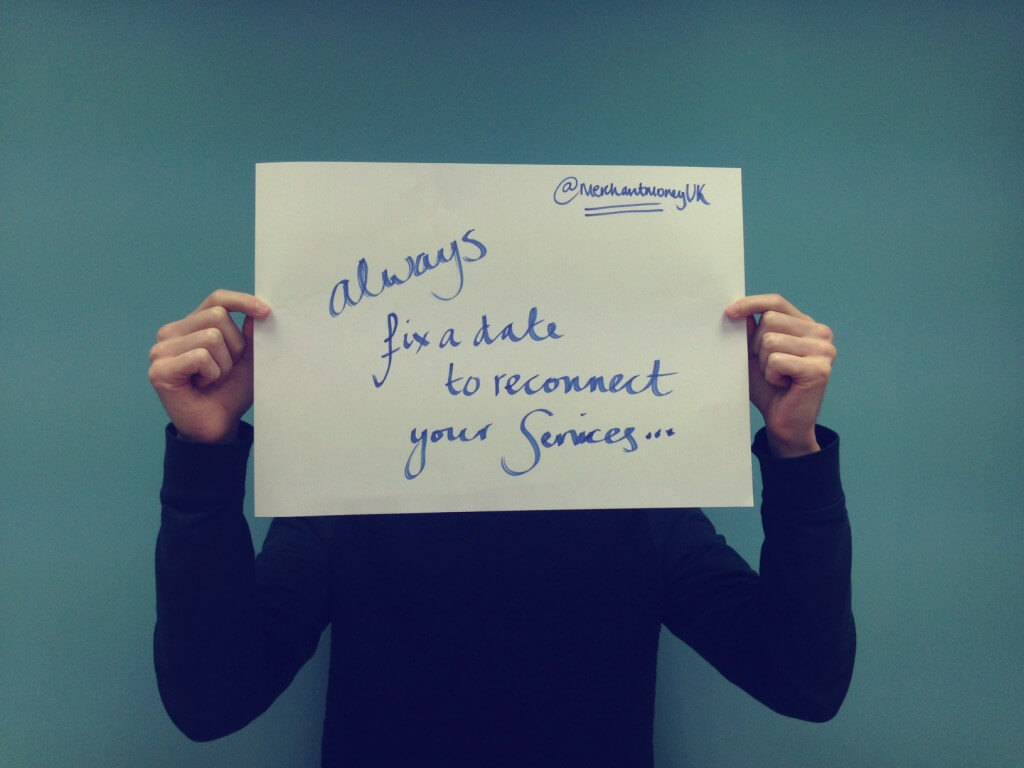 @MerchantmoneyUK
always
fix a date
to reconnect
your Services...